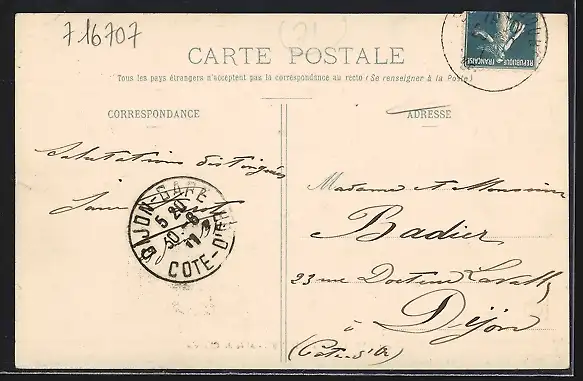 716707
CARTE POSTALE
Tous les pays étrangers n'acceptent pas la correspondance au recto (Se renseigner à la Poste)
CORRESPONDANCE
ADRESSE
REPUBLIQUE FRANÇAISE
Salutations distinguées
DIJON-GARE
5 20
30-8
11
COTE-D'OR
Madame et Monsieur
Badier
23 rue Docteur
à Dijon
(Côte-d'Or)